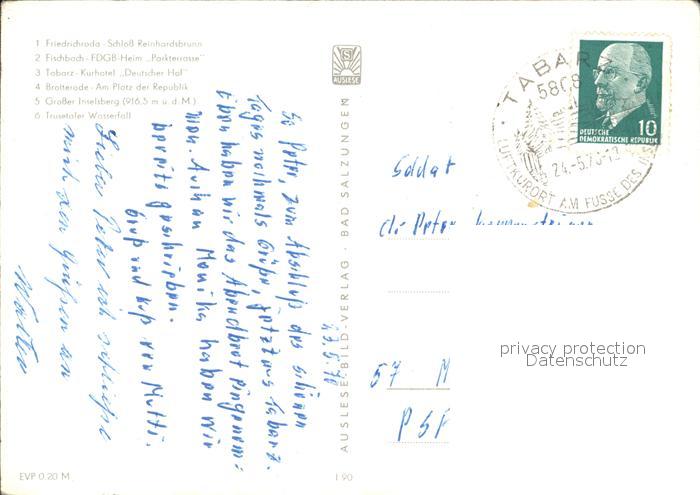 1 Friedrichroda - Schloß Reinhardsbrunn
2 Fischbach - FDGB-Heim „Parkterrasse"
3 Tabarz - Kurhotel „Deutscher Hof"
4 Brotterode - Am Platz der Republik
5 Großer Inselsberg (916,5 m ü. d. M.)
6 Trusetaler Wasserfall
AUSLESE
AUSLESE-BILD-VERLAG · BAD SALZUNGEN
23.5.70
So Peter, zum Abschluß des schönen
Tages nochmals Grüße, jetzt aus Tabarz.
Eben haben wir das Abendbrot eingenom=
men. Auch an Monika haben wir
bereits geschrieben.
Gruß und Kuß von Mutti.
Lieber Peter ich schließe
mich den Grüßen an
Walter
TABARZ
5808
24.-5.70-12
LUFTKURORT AM FUSSE DES
DEUTSCHE
DEMOKRATISCHE REPUBLIK
10
Soldat
Peter
57 M
PSF
privacy protection
Datenschutz
EVP 0.20 M
I 90